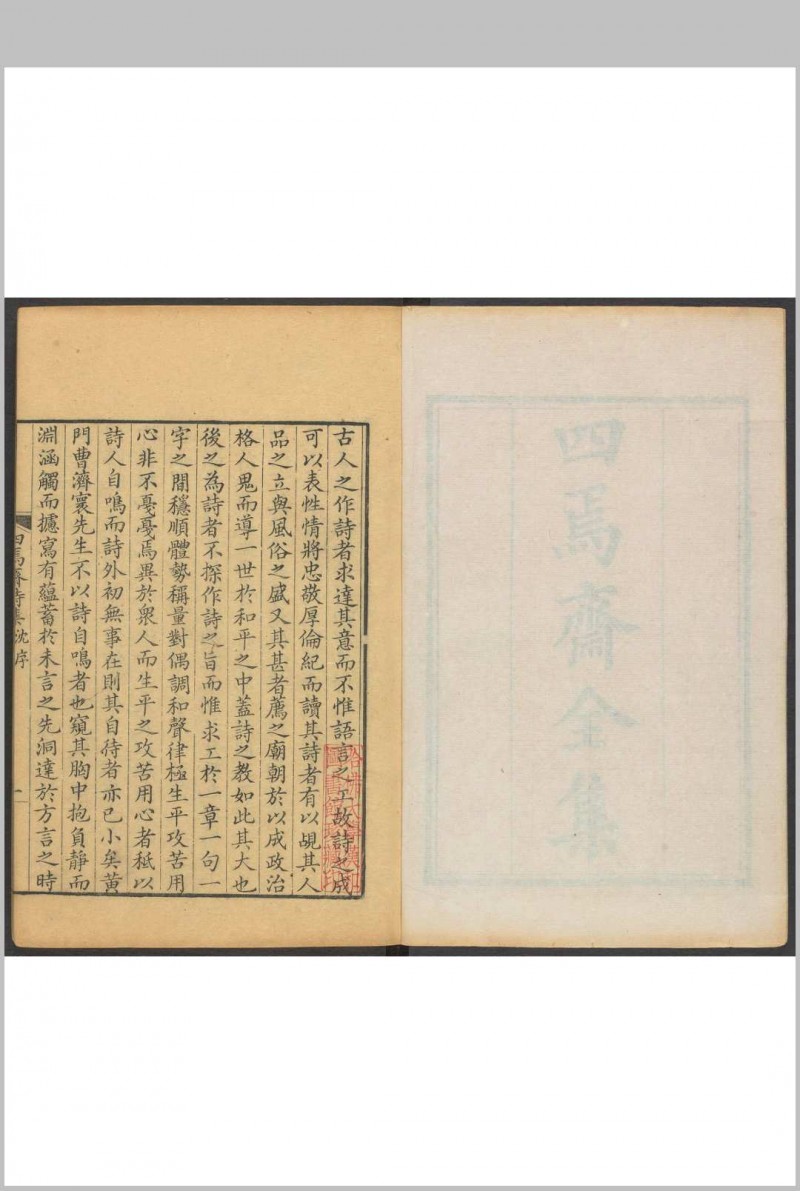 四焉齋全集
古人之作詩者求達其意而不惟語言之工故詩之成
可以表性情將忠敬厚倫紀而讀其詩者有以覘其人
品之立與風俗之盛又其甚者薦之廟朝於以成政治
格人鬼而導一世於和平之中蓋詩之教如此其大也
後之為詩者不探作詩之旨而惟求工於一章一句一
字之間穩順體勢稱量對偶調和聲律極生平攻苦用
心非不戞戞焉異於衆人而生平之攻苦用心者秪以
詩人自鳴而詩外初無事在則其自待者亦已小矣黃
門曹濟寰先生不以詩自鳴者也窺其胸中抱負靜而
淵涵觸而攄寫有蘊蓄於未言之先洞達於方言之時
四焉齋詩集沈序 一